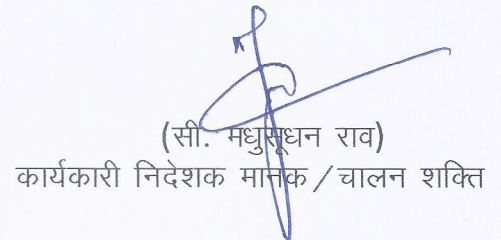 (सी. मधुसूधन राव)
कार्यकारी निदेशक मानक / चालन शक्ति